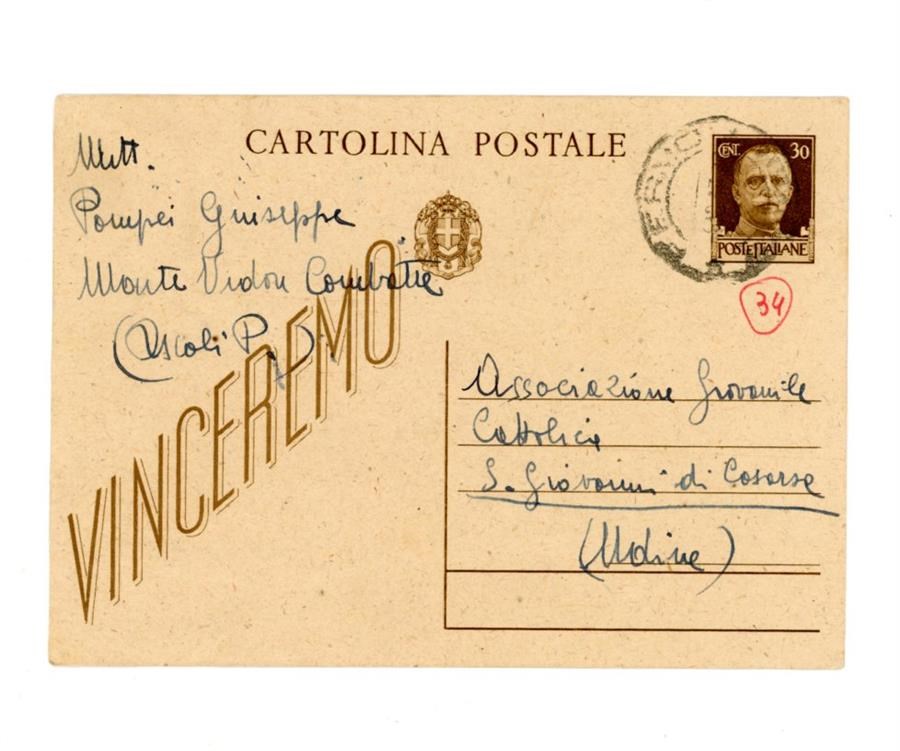 CARTOLINA POSTALE
Mitt.
Pompei Giuseppe
Monte Vidon Combatte
(Ascoli P.)
VINCEREMO
CENT. 30
POSTE ITALIANE
34
Associazione Giovanile
Cattolica
S. Giovanni di Casarsa
(Udine)